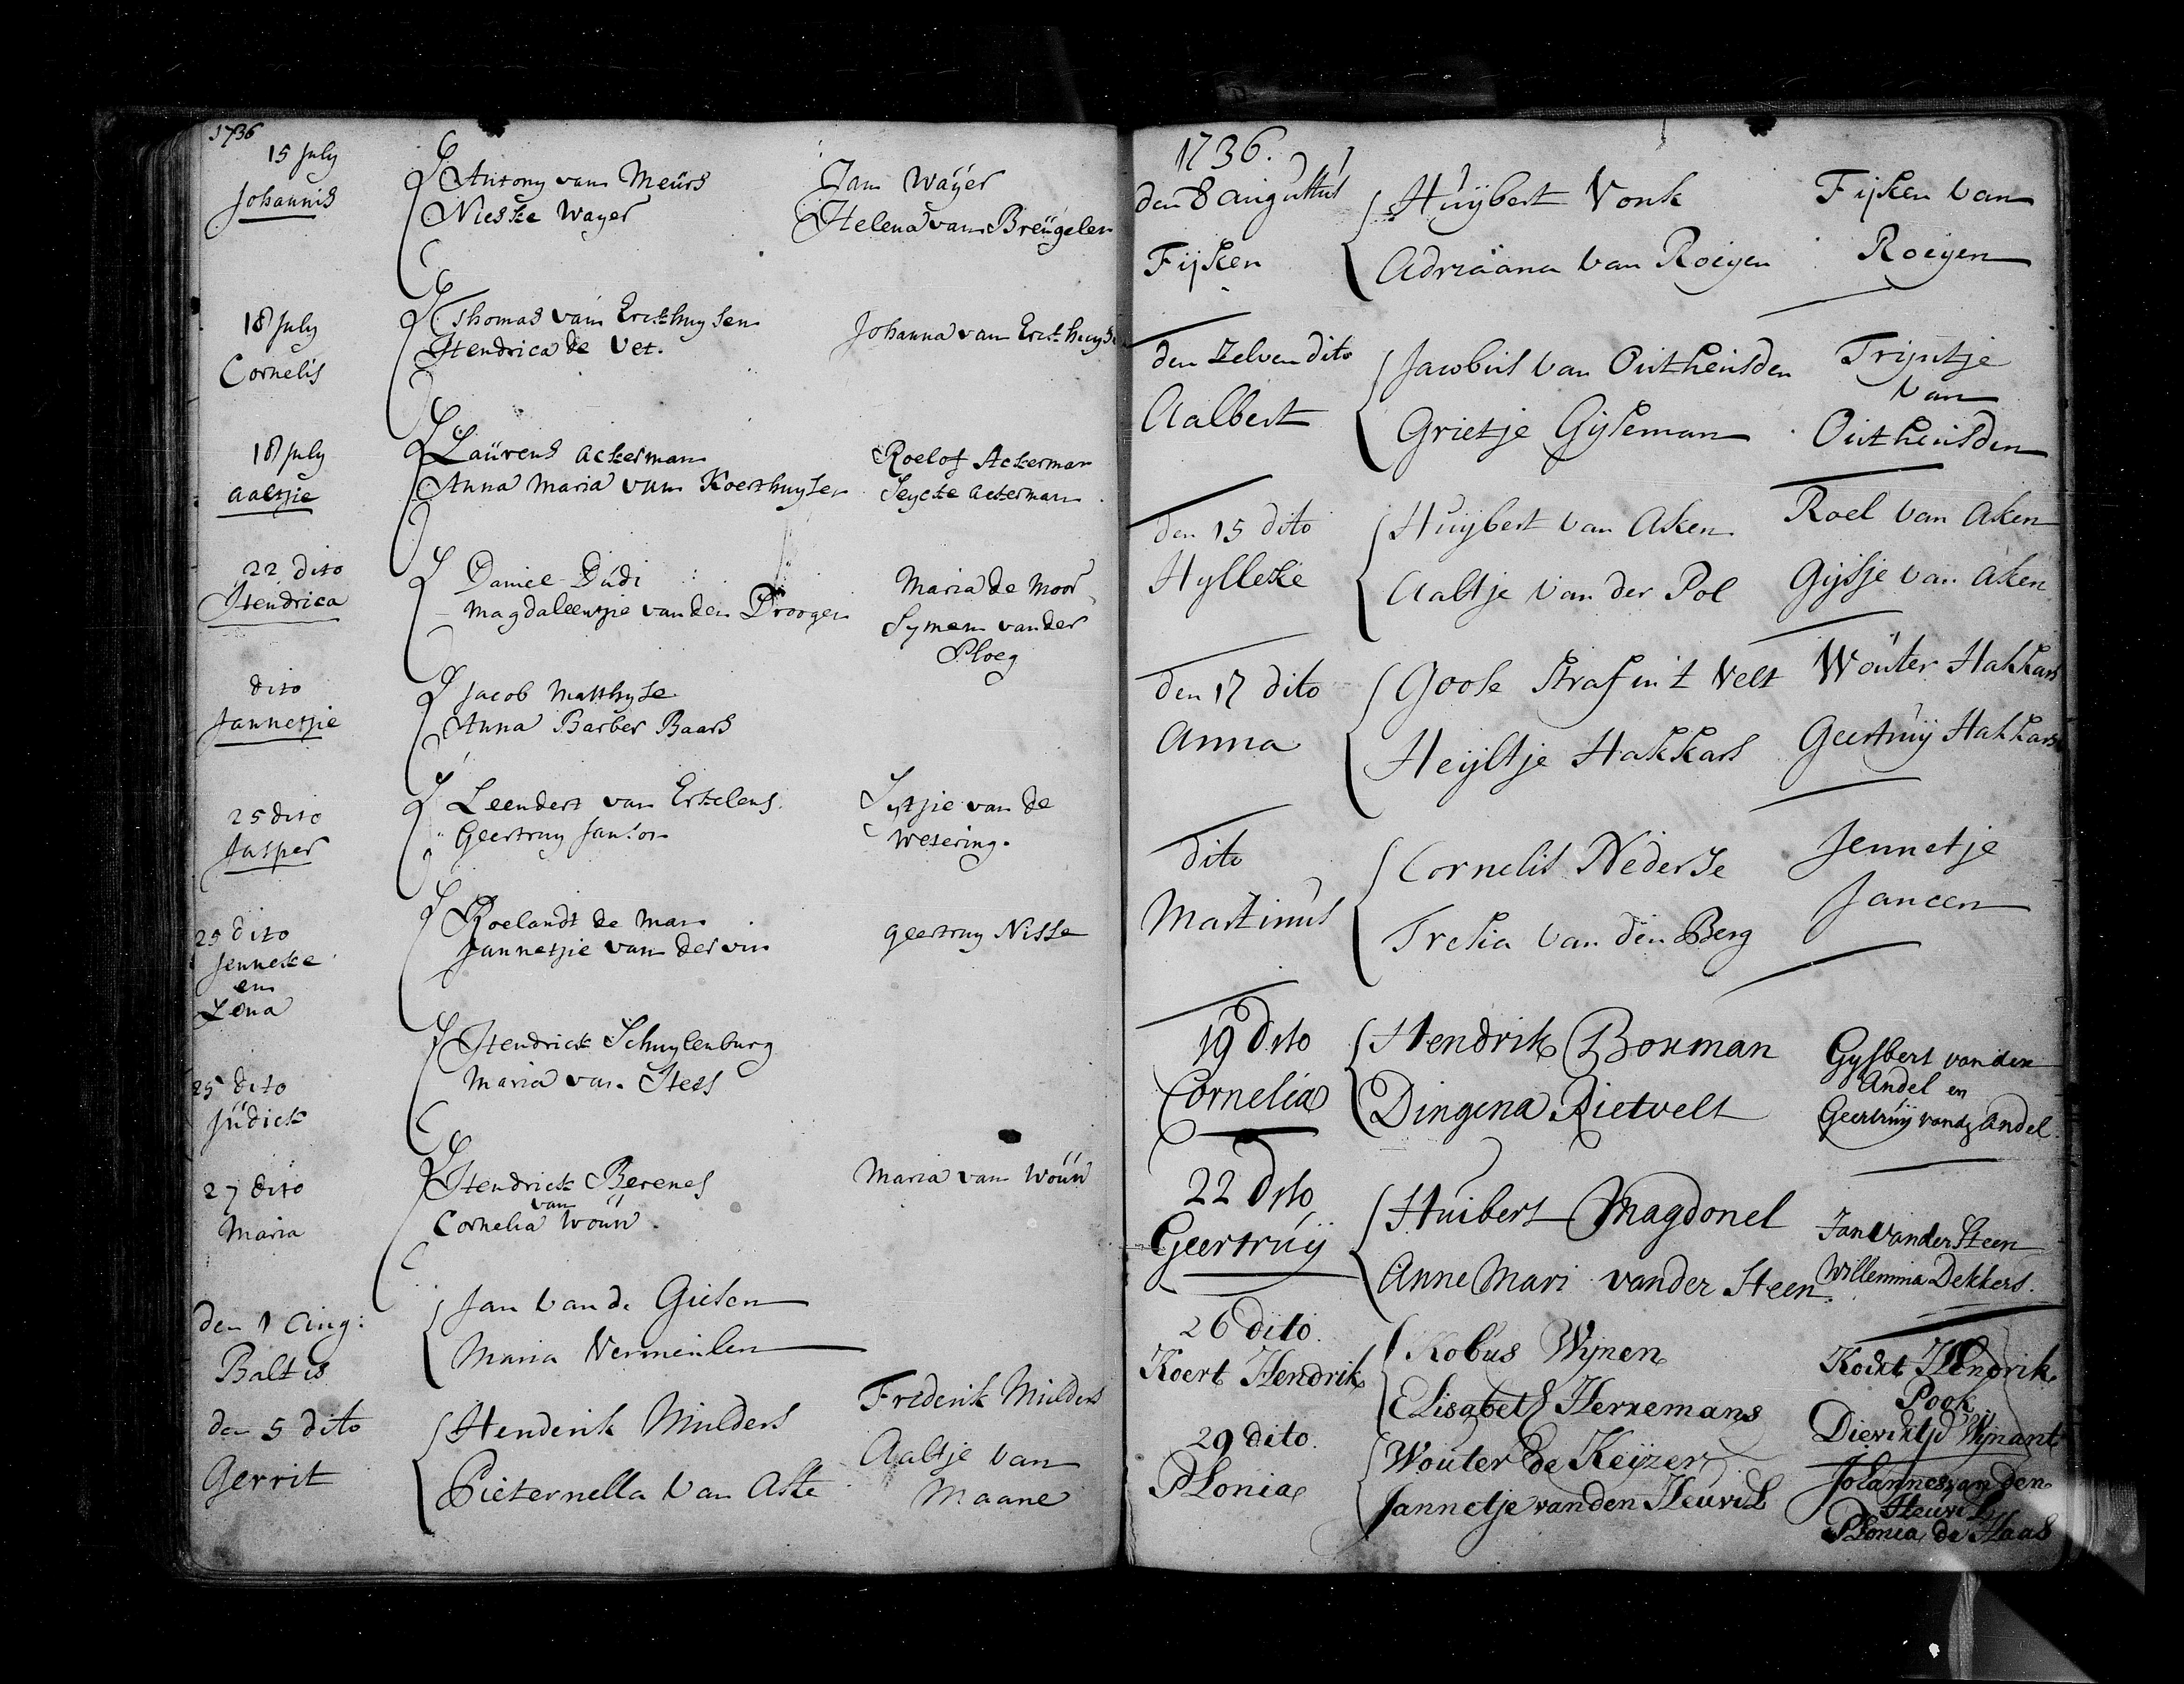 1736
15 July
Johannis
Antony van Meürs
Nieske Wayer
Jan Wäyer
Helena van Breügelen
18 July
Cornelis
Thomas van Erethuysen
Hendrica de Vet.
Johanna van Erethuys
18 July
aaltjie
Laürens Ackerman
Anna Maria van Koerthuysen
Roelof Ackerman
Seycte ackerman
22 dito
Hendrica
Daniel Dúdi
Magdaleentjie van den Droogen
Maria de Moor
Symen van der
Ploeg
dito
Jannetjie
Jacob Matthyse
Anna Barber Baars
25 dito
Jasper
Leendert van Erkelens
Geertruy Janson
Sytjie van de
Wetering.
25 dito
Jenneke
en
Lena
Roelandt de Man
Jannetjie van der vin
geertruy Nisse
25 dito
Jüdick
Hendrick Schuylenburg
Maria van Hees
27 dito
Maria
Hendrick Berenes
van
Cornelia Woüw
Maria van Woüw
den 1 aug:
Baltis
Jan van de Giesen
Maria Vermeulen
den 5 dito
Gerrit
Henderik Mulders
Pieternella van Aste
Frederik Mulders
Aaltje van
Maane
1736.
den 8 augustus
Fijken
Huijbert Vonk
Adriäana van Roeijen
Fijken van
Roeijen
den zelven dito
Aalbert
Jacobus van Outheusden
Grietje Gijseman
Trijntje
van
Outheusden
den 15 dito
Hylleke
Huijbert van Aken
Aaltje van der Pol
Roel van Aken
Gijsje van Aken
den 17 dito
Anna
Goose Straf in 't Velt
Heijltje Hakkars
Wouter Hakkars
Geertruij Hakkars
dito
Martinus
Cornelis Nederse
Tresia van den Berg
Jennetje
Jancen
19 dito
Cornelia
Hendrik Boxman
Dingena Rietvelt
Gysbert van den
Andel en
Geertruij vand Andel
22 dito
Geertruij
Huibert Magdonel
Anne Mari vander Steen
Jan vander Steen
Willemina Dekkers.
26 dito.
Koert Hendrik
Kobus Wijnen
Elisabeth Herremans
Koert Hendrik
Pook
Dierikije Wijnant
29 dito.
Plonia
Wouter de Keijzer
Jannetje van den Heuvel
Johannes van den
Heuvel
Plonia de Haas